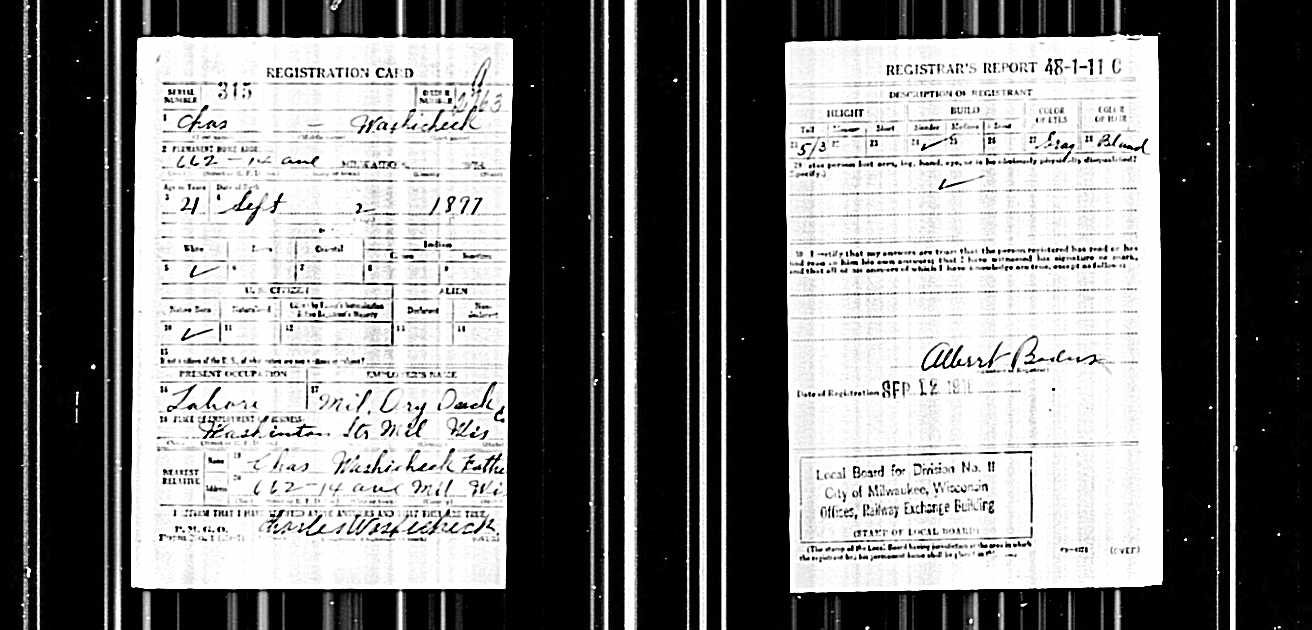 REGISTRATION CARD
SERIAL NUMBER 315
ORDER NUMBER
1 Chas — Washicheck
2 PERMANENT HOME ADDRESS
662 - 14 ave MILWAUKEE WIS.
Age in Years Date of Birth
3 21 4 Sept 2 1897
White Oriental Indian
Citizen
5 ✓ 6 7 8 9
U. S. CITIZEN ALIEN
Native Born Naturalized Citizen by Father's Naturalization Before Registrant's Majority Declarant Non-declarant
10 ✓ 11 12 13 14
15
If not a citizen of the U. S., of what nation are you a citizen or subject?
PRESENT OCCUPATION EMPLOYER'S NAME
16 17 Mil.
18 PLACE OF EMPLOYMENT OR BUSINESS
Washinton Str Mil Wis
NEAREST RELATIVE Name 19 Chas Washicheck Fathe
Address 20 662-14 ave Mil Wi
I AFFIRM THAT I HAVE VERIFIED ABOVE ANSWERS AND THAT THEY ARE TRUE
P. M. G. O.
Charles Washicheck
REGISTRAR'S REPORT 48-1-11 C
DESCRIPTION OF REGISTRANT
HEIGHT BUILD COLOR OF EYES COLOR OF HAIR
Tall Medium Short Slender Medium Stout
21 5/3 22 23 24 ✓ 25 26 27 Gray 28 Bland
29 Has person lost arm, leg, hand, eye, or is he obviously physically disqualified?
(Specify.)
✓
30 I certify that my answers are true; that the person registered has read or has
had read to him his own answers; that I have witnessed his signature or mark,
and that all of his answers of which I have knowledge are true, except as follows:
Albert
Date of Registration SEP 12 1918
Local Board for Division No. 11
City of Milwaukee, Wisconsin
Offices, Railway Exchange Building
(STAMP OF LOCAL BOARD)
(The stamp of the Local Board having jurisdiction of the area in which
the registrant has his permanent home shall be placed in this box.)
(OVER)